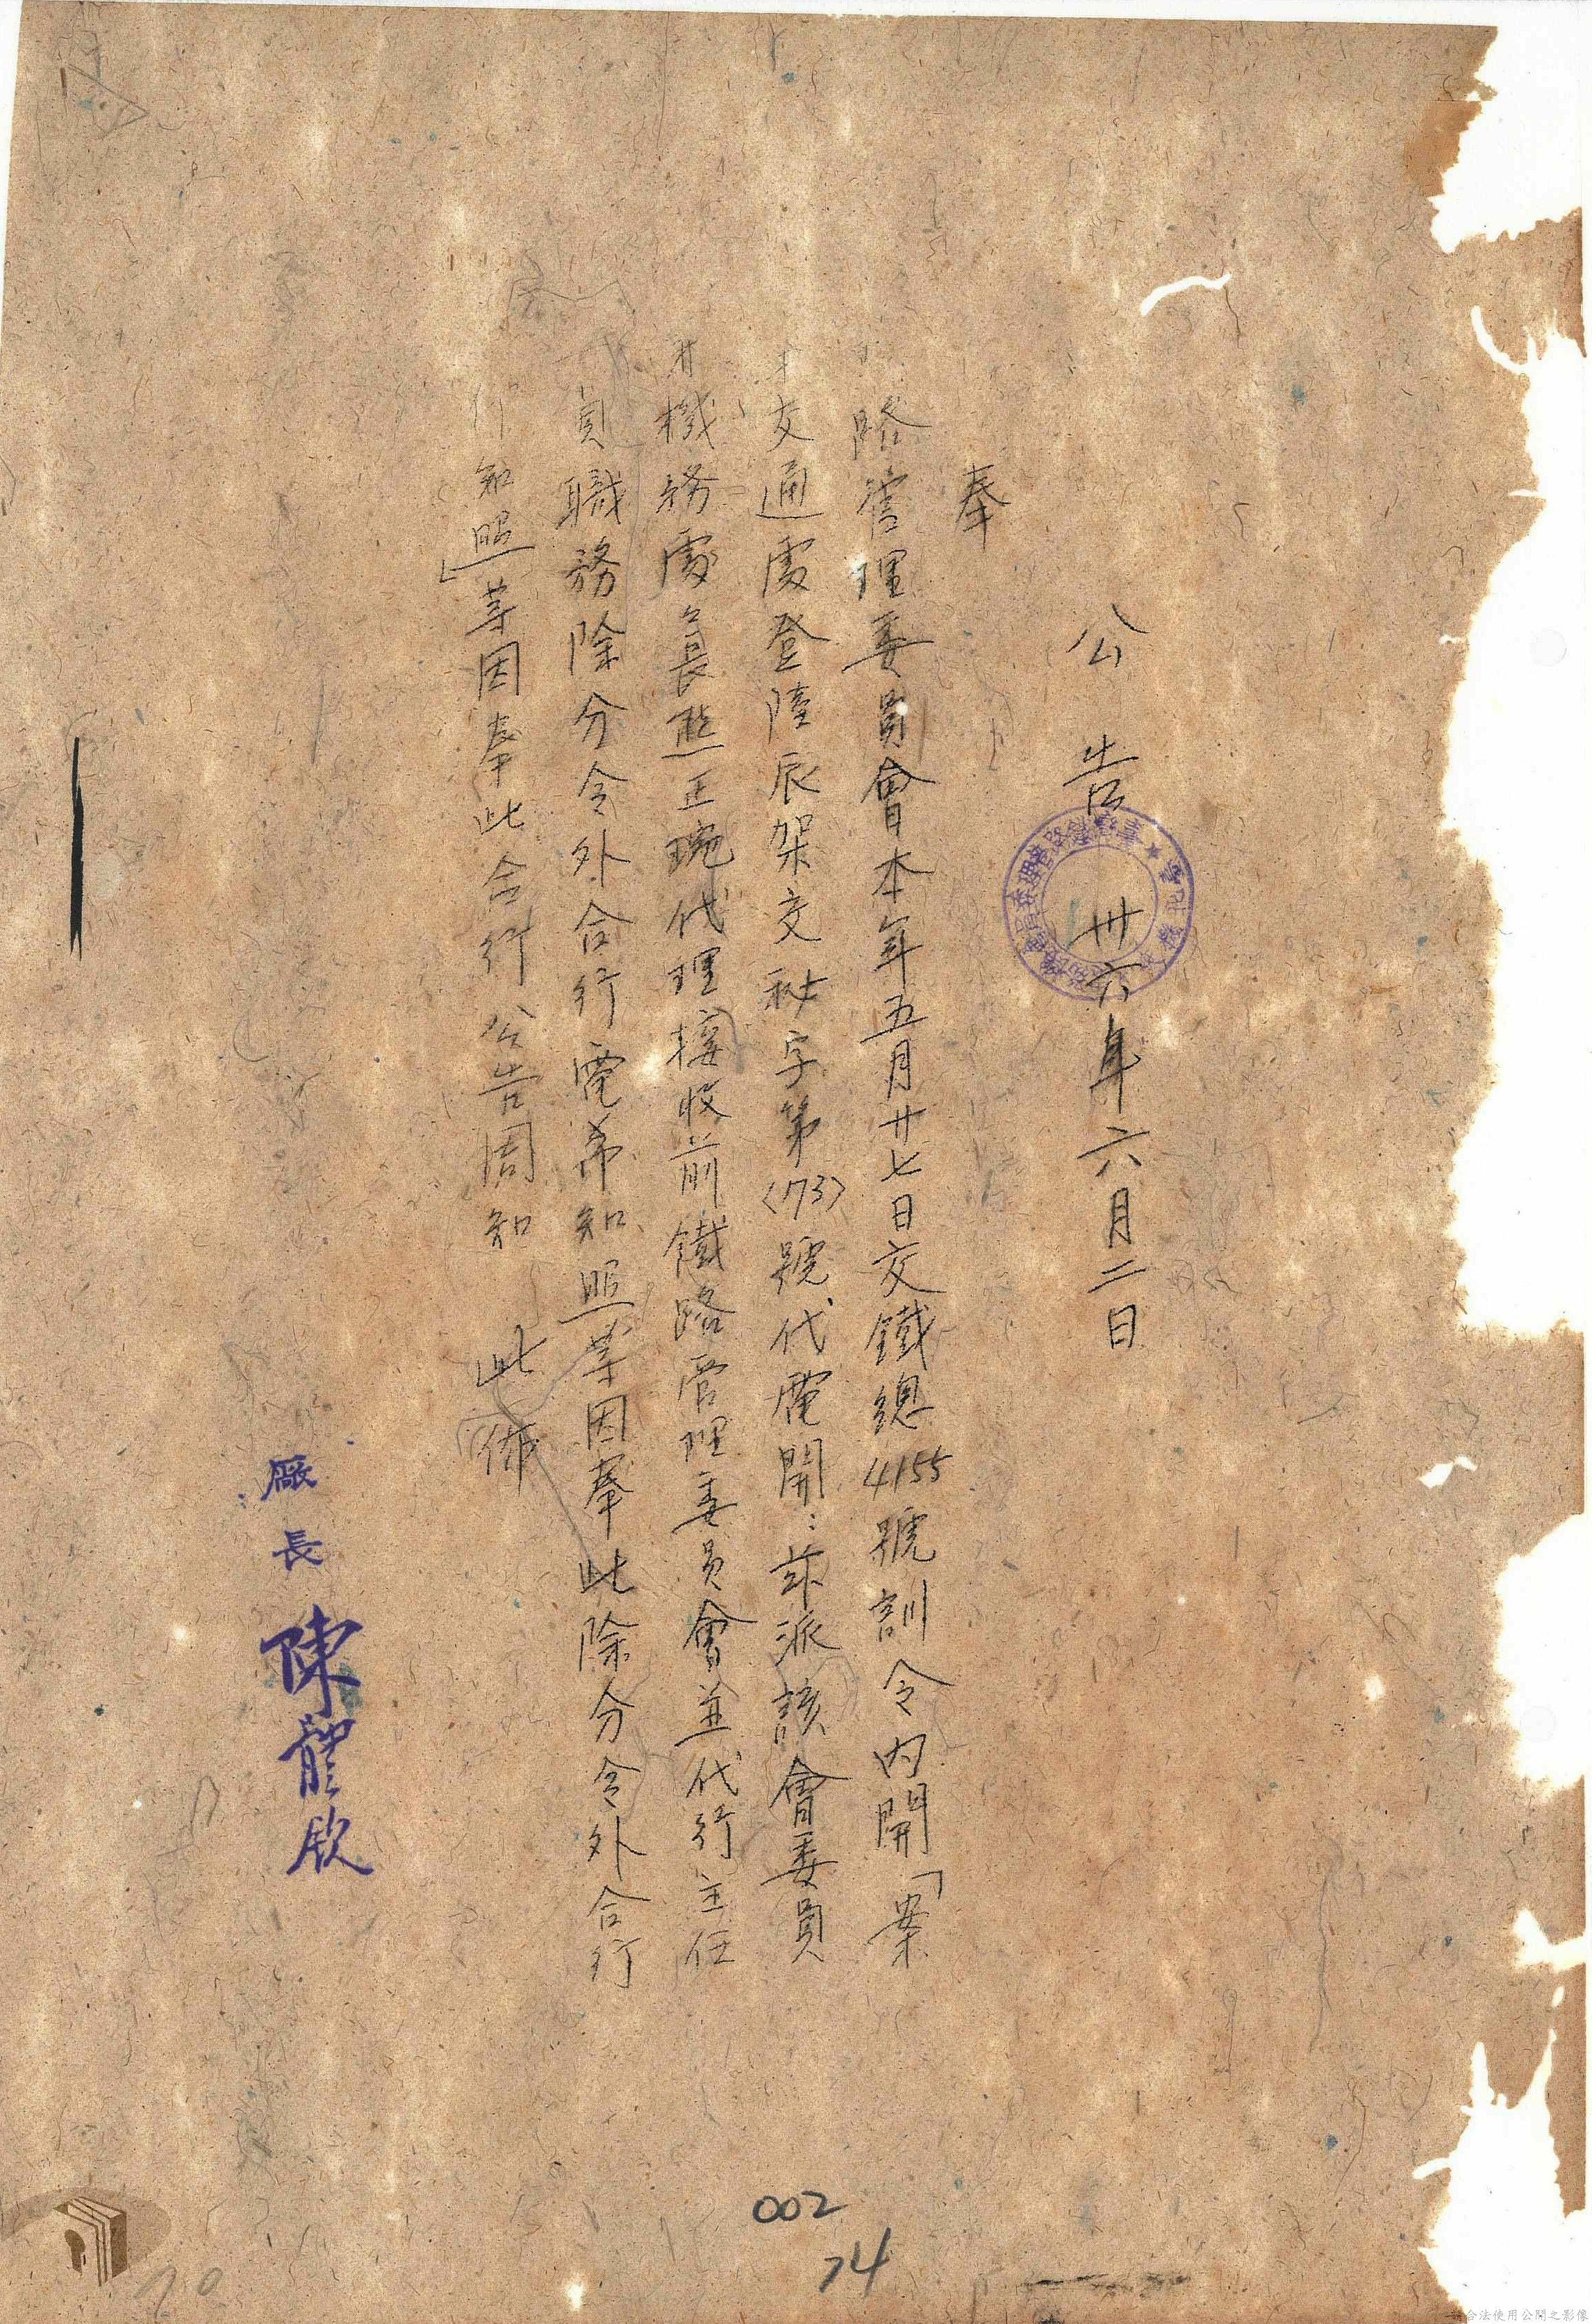 公告 卅六年六月二日
奉
路管理委員會本年五月廿七日交鐵總4155號訓令內開「案
交通處登陸辰架交秘字第(173)號代電開:茲派該會委員
機務處處長熊正琬代理接收前鐵路管理委員會並代行主任
員職務除分令外合行電希知照等因奉此除分令外合行
知照」等因奉此合行公告周知 此佈
廠長 陳體欣
002
74
70
請合法使用公開之影像